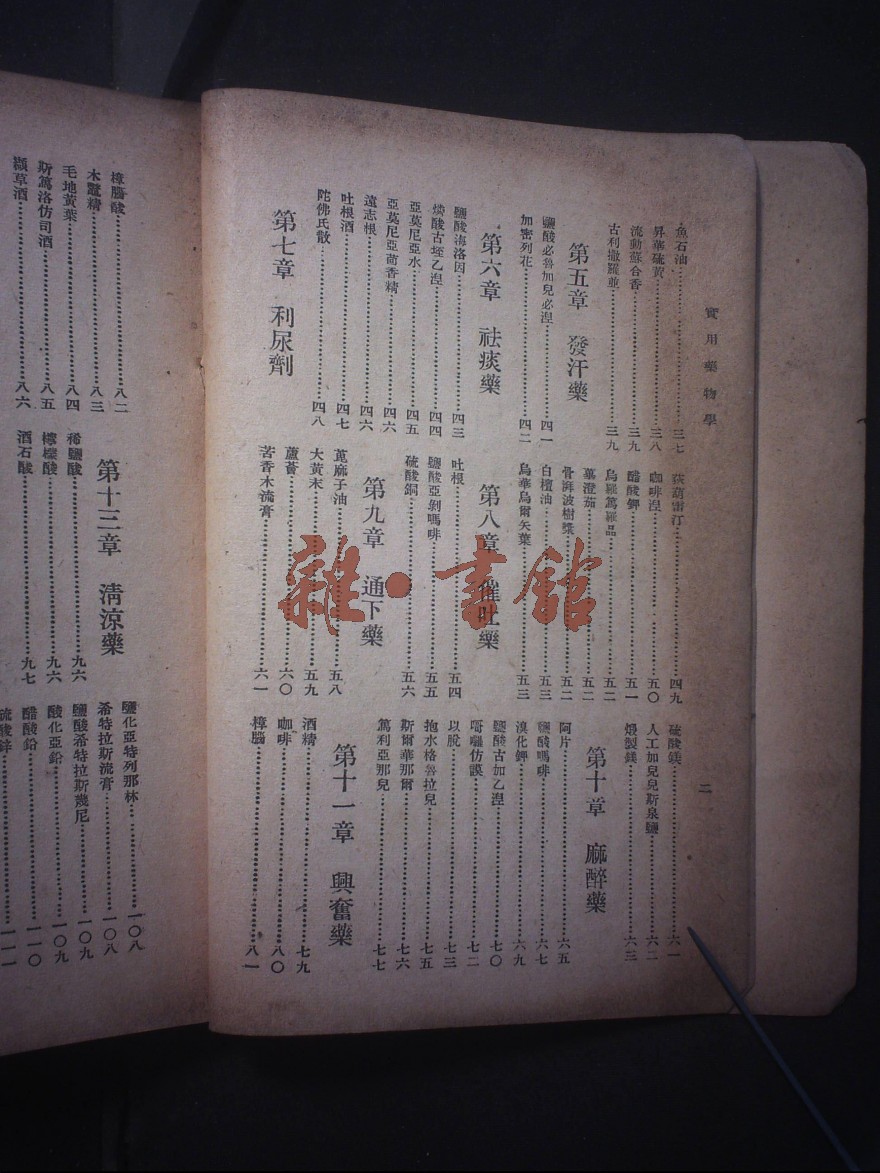 實用藥物學
二
魚石油……三七
昇華硫黃……三八
流動蘇合香……三九
古利撒羅並……三九
第五章 發汗藥
鹽酸必魯加兒必涅……四一
加密列花……四二
第六章 祛痰藥
鹽酸海洛因……四三
燐酸古垤乙涅……四四
亞莫尼亞水……四五
亞莫尼亞茴香精……四六
遠志根……四六
吐根酒……四七
陀佛氏散……四八
第七章 利尿劑
荻葫雷汀……四九
咖啡涅……五〇
醋酸鉀……五一
烏羅篤羅品……五二
蓽澄茄……五二
骨湃波樹漿……五二
白檀油……五三
烏華烏爾矢葉……五三
第八章 催吐藥
吐根……五四
鹽酸亞剝嗎啡……五五
硫酸銅……五六
第九章 通下藥
萞麻子油……五八
大黃末……五九
蘆薈……六〇
苦香木流膏……六一
硫酸鎂……六一
人工加兒兒斯泉鹽……六二
煆製鎂……六三
第十章 麻醉藥
阿片……六五
鹽酸嗎啡……六七
溴化鉀……六九
鹽酸古加乙涅……七〇
哥囉仿謨……七二
以脫……七三
抱水格魯拉兒……七五
斯爾華那爾……七六
篤利亞那兒……七七
第十一章 興奮藥
酒精……七九
咖啡……八〇
樟腦……八一
樟腦酸……八二
木鼈精……八三
毛地黃葉……八四
斯篤洛仿司酒……八五
纈草酒……八六
第十三章 淸涼藥
稀鹽酸……九六
檸檬酸……九六
酒石酸……九七
鹽化亞特列那林……一〇八
希特拉斯流膏……一〇八
鹽酸希特拉斯幾尼……一〇九
酸化亞鉛……一〇九
醋酸鉛……一一〇
硫酸鋅……一一一
雜·書館